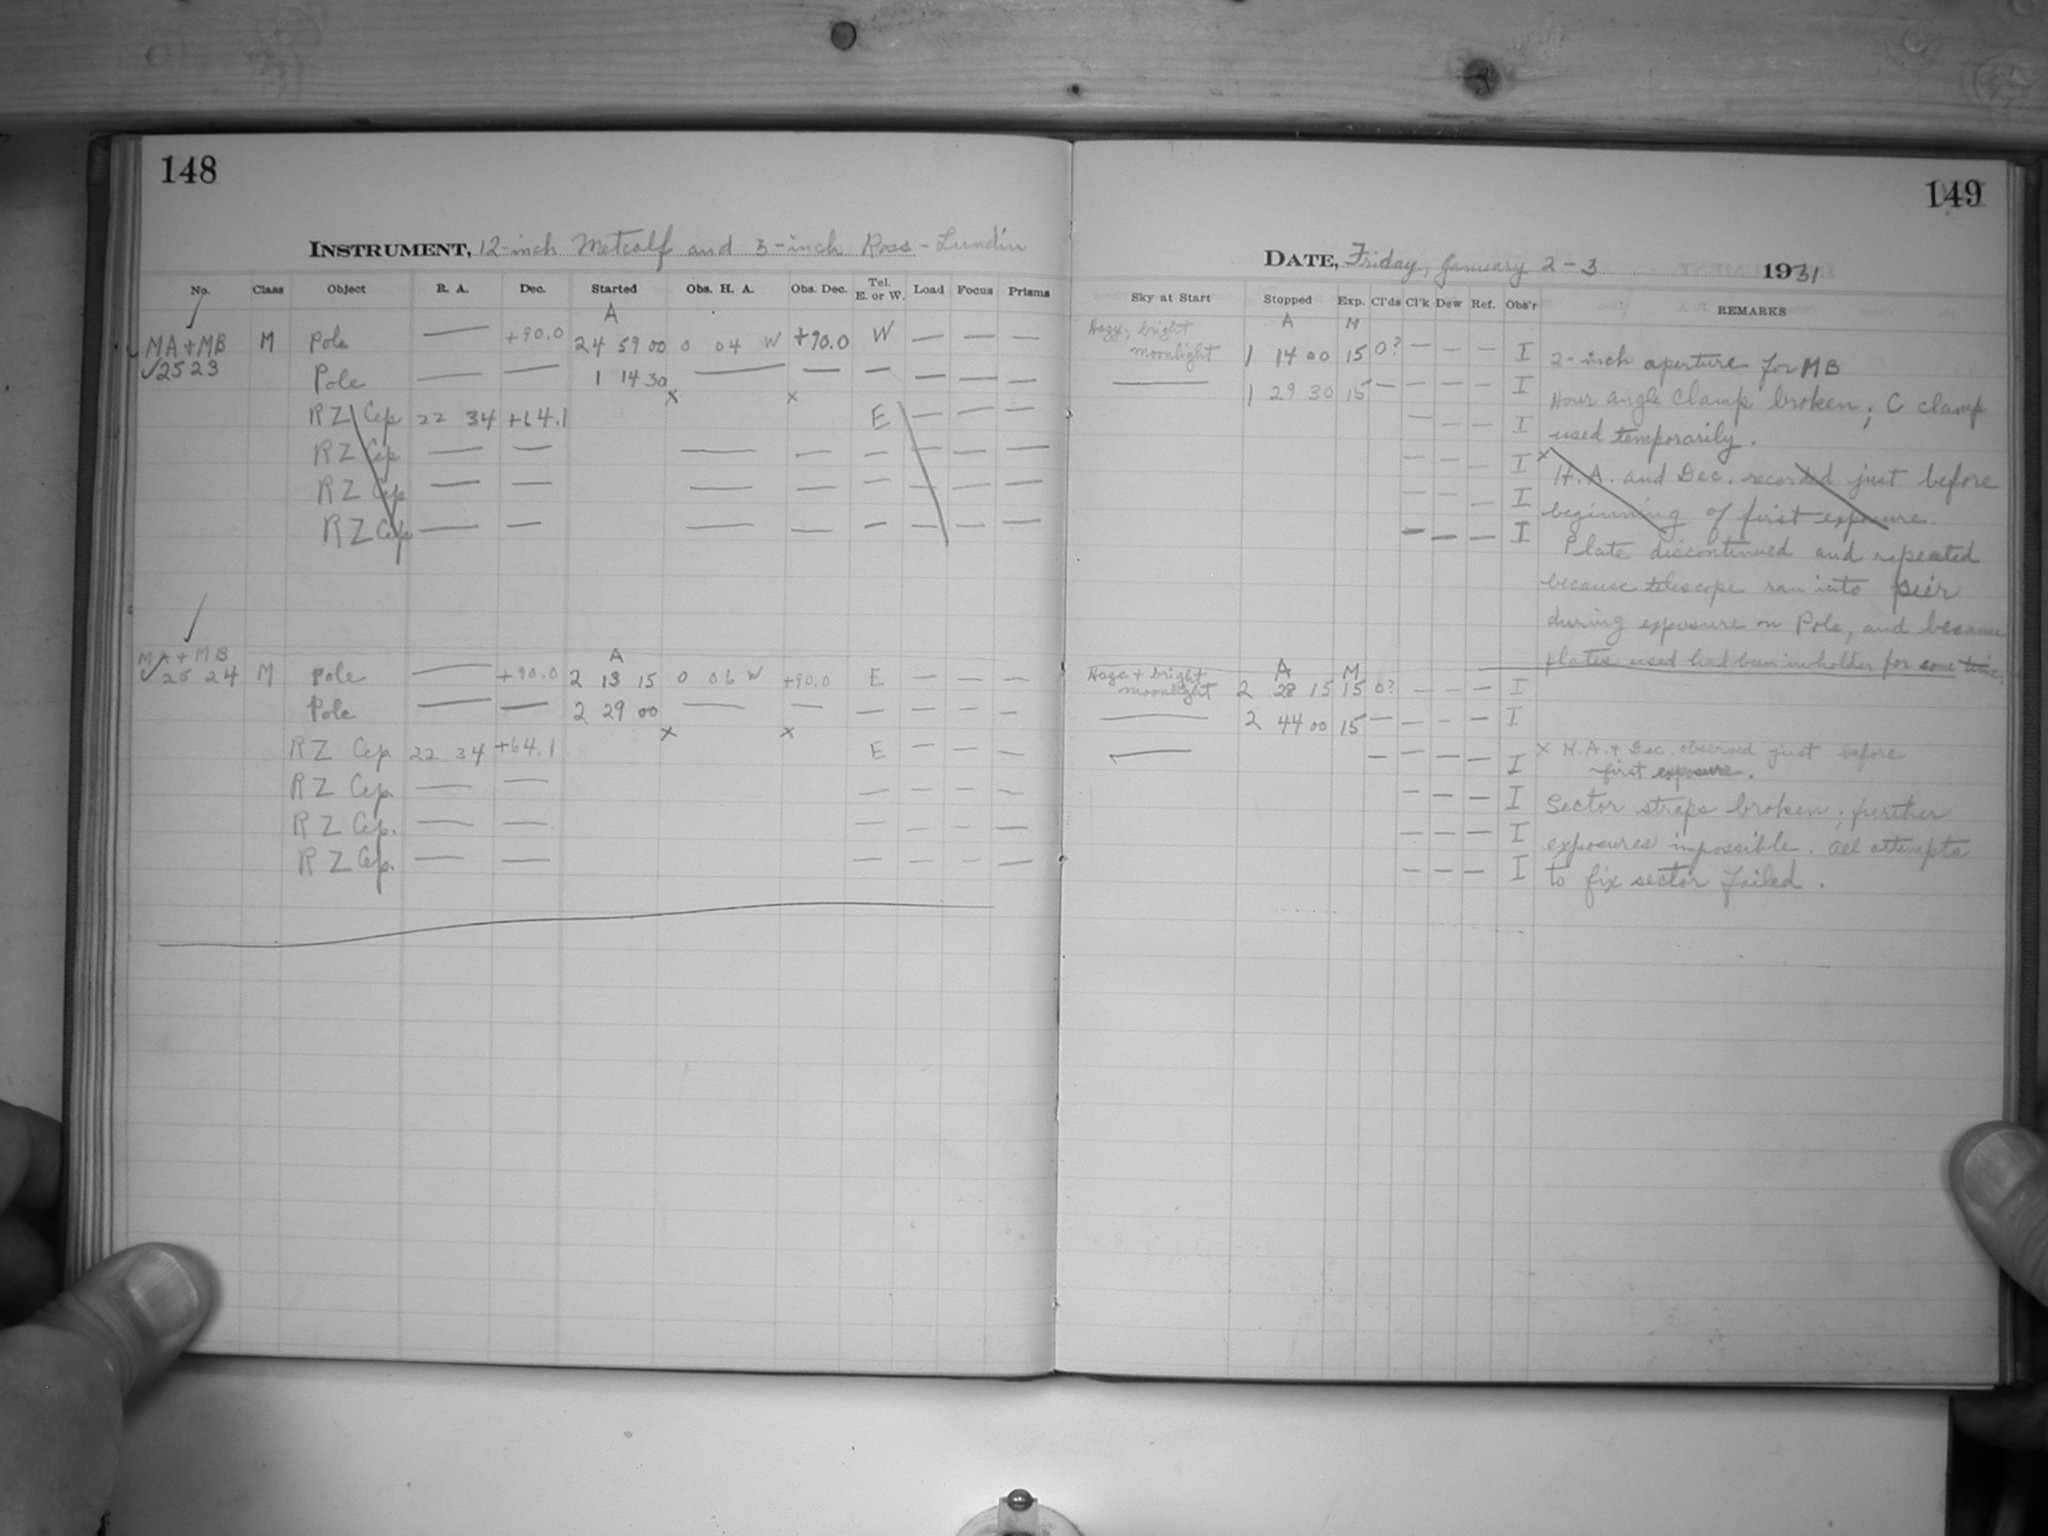 148
INSTRUMENT, 12-inch Metcalf and 3-inch Ross-Lundin
No. Class Object R. A. Dec. Started Obs. H. A. Obs. Dec. Tel. E. or W. Load Focus Prisms
A
MA+MB M Pole — +90.0 24 59 00 0 04 W +90.0 W — — —
2523 Pole — — 1 14 30 — — — — — —
x x
RZ Cep 22 34 +64.1 E — — —
RZ Cep — — — — — — — —
RZ Cep — — — — — — — —
RZ Cep — — — — — — — —
MA+MB A
2524 M Pole — +90.0 2 13 15 0 06 W +90.0 E — — —
Pole — — 2 29 00 — — — — — —
x x
RZ Cep. 22 34 +64.1 E — — —
RZ Cep. — — — — — —
RZ Cep. — — — — — —
RZ Cep. — — — — — —
149
DATE, Friday, January 2-3 1931
Sky at Start Stopped Exp. Cl'ds Cl'k Dew Ref. Obs'r REMARKS
A M
Hazy; bright
moonlight 1 14 00 15 0? — — — I 2-inch aperture for MB
— 1 29 30 15 — — — — I Hour angle clamp broken; C clamp
— — — I used temporarily.
— — — I x H.A. and Dec. recorded just before
— — — I beginning of first exposure.
— — — I Plate discontinued and repeated
because telescope ran into pier
during exposure on Pole, and because
plates used had been in holder for some time.
A M
Haze + bright
moonlight 2 28 15 15 0? — — — I
— 2 44 00 15 — — — — I
— — — — — I x H.A. + Dec. observed just before
first exposure.
— — — I Sector straps broken; further
— — — I exposures impossible. All attempts
— — — I to fix sector failed.